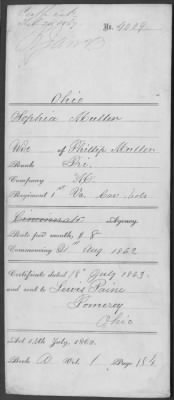 No. 4029
Ohio
Sophia Mullen
Wid of Phillip Mullen
Rank Pri.
Company "M"
Regiment 1st Va. Cav. Vols
Cincinnati Agency
Rate per month, $ 8
Commencing 21st Aug 1862
Certificate dated 18th July 1863
and sent to Lewis Paine
Pomeroy
Ohio
Act 14th July, 1862.
Book D Vol. 1 Page 154